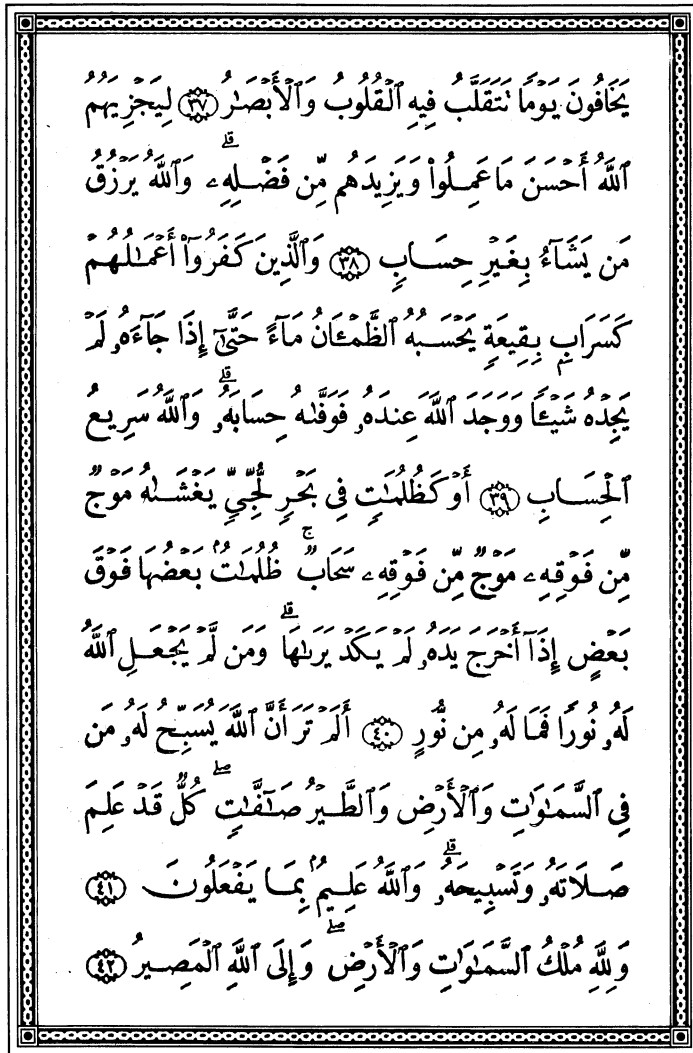 يَخَافُونَ يَوْمًا تَتَقَلَّبُ فِيهِ ٱلْقُلُوبُ وَٱلْأَبْصَٰرُ ۝٣٧ لِيَجْزِيَهُمُ
ٱللَّهُ أَحْسَنَ مَا عَمِلُوا۟ وَيَزِيدَهُم مِّن فَضْلِهِۦ ۗ وَٱللَّهُ يَرْزُقُ
مَن يَشَآءُ بِغَيْرِ حِسَابٍ ۝٣٨ وَٱلَّذِينَ كَفَرُوٓا۟ أَعْمَٰلُهُمْ
كَسَرَابٍۭ بِقِيعَةٍ يَحْسَبُهُ ٱلظَّمْـَٔانُ مَآءً حَتَّىٰٓ إِذَا جَآءَهُۥ لَمْ
يَجِدْهُ شَيْـًٔا وَوَجَدَ ٱللَّهَ عِندَهُۥ فَوَفَّىٰهُ حِسَابَهُۥ ۗ وَٱللَّهُ سَرِيعُ
ٱلْحِسَابِ ۝٣٩ أَوْ كَظُلُمَٰتٍ فِى بَحْرٍ لُّجِّىٍّ يَغْشَىٰهُ مَوْجٌ
مِّن فَوْقِهِۦ مَوْجٌ مِّن فَوْقِهِۦ سَحَابٌ ۚ ظُلُمَٰتٌۢ بَعْضُهَا فَوْقَ
بَعْضٍ إِذَآ أَخْرَجَ يَدَهُۥ لَمْ يَكَدْ يَرَىٰهَا ۗ وَمَن لَّمْ يَجْعَلِ ٱللَّهُ
لَهُۥ نُورًا فَمَا لَهُۥ مِن نُّورٍ ۝٤٠ أَلَمْ تَرَ أَنَّ ٱللَّهَ يُسَبِّحُ لَهُۥ مَن
فِى ٱلسَّمَٰوَٰتِ وَٱلْأَرْضِ وَٱلطَّيْرُ صَٰٓفَّٰتٍ ۖ كُلٌّ قَدْ عَلِمَ
صَلَاتَهُۥ وَتَسْبِيحَهُۥ ۗ وَٱللَّهُ عَلِيمٌۢ بِمَا يَفْعَلُونَ ۝٤١
وَلِلَّهِ مُلْكُ ٱلسَّمَٰوَٰتِ وَٱلْأَرْضِ ۖ وَإِلَى ٱللَّهِ ٱلْمَصِيرُ ۝٤٢